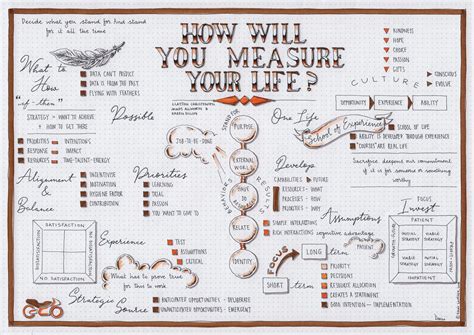 Decide what you stand for and stand
for it all the time
HOW WILL
YOU MEASURE
YOUR LIFE?
CLAYTON CHRISTENSEN,
JAMES ALLWORTH &
KAREN DILLON
KINDNESS
HOPE
CHOICE
PASSION
GIFTS
CULTURE
CONSCIOUS
EVOLVE
OPPORTUNITY
EXPERIENCE
ABILITY
What to
How
"if - then"
DATA CAN'T PREDICT
DATA IS FROM THE PAST
FLYING WITH FEATHERS
STRATEGY = WANT TO ACHIEVE
+ HOW TO GET THERE
PRIORITIES
INTENTIONS
RESPONSE
IMPACT
RESOURCES
TIME-TALENT-ENERGY
Possible
JOB-TO-BE-DONE
One Life
School of Experience
SCHOOL OF LIFE
ABILITY DEVELOPED THROUGH EXPERIENCES
COURSES ARE REAL LIFE
Sacrifice deepens our commitment
if it is for someone or something
worthy
STAND FOR
PURPOSE
EXTERNAL
WORLD
HAVE
TO
RELATE
IDENTITY
BEHAVIOR
Alignment
&
Balance
INCENTIVISE
MOTIVATION
HYGIENE FACTOR
CONTRIBUTION
Priorities
LEARNING
TRIAL
PASSION
YOU WANT TO GIVE IT
Develop
CAPABILITIES
FUTURE
RESOURCES - WHAT
PROCESSES - HOW
PRIORITIES - WHY
SIMPLE INTERACTIONS
RICH INTERACTIONS cognitive advantage
SATISFACTION
NO DISSATISFACTION
DISSATISFACTION
NO SATISFACTION
Experience
TEST
ASSUMPTIONS
CRITICAL
What has to prove true
for this to work
Assumptions
FOCUS
LONG
SHORT
term
PRIORITY
DECISIONS
RESOURCE ALLOCATION
CREATES A STATEMENT
GOOD INTENTION - IMPLEMENTATION
Invest
PATIENT
VIABLE
STRATEGY
INITIAL
STRATEGY
IMPATIENT
Strategic
Source
ANTICIPATED OPPORTUNITIES - DELIBERATE
UNANTICIPATED OPPORTUNITIES - EMERGENT